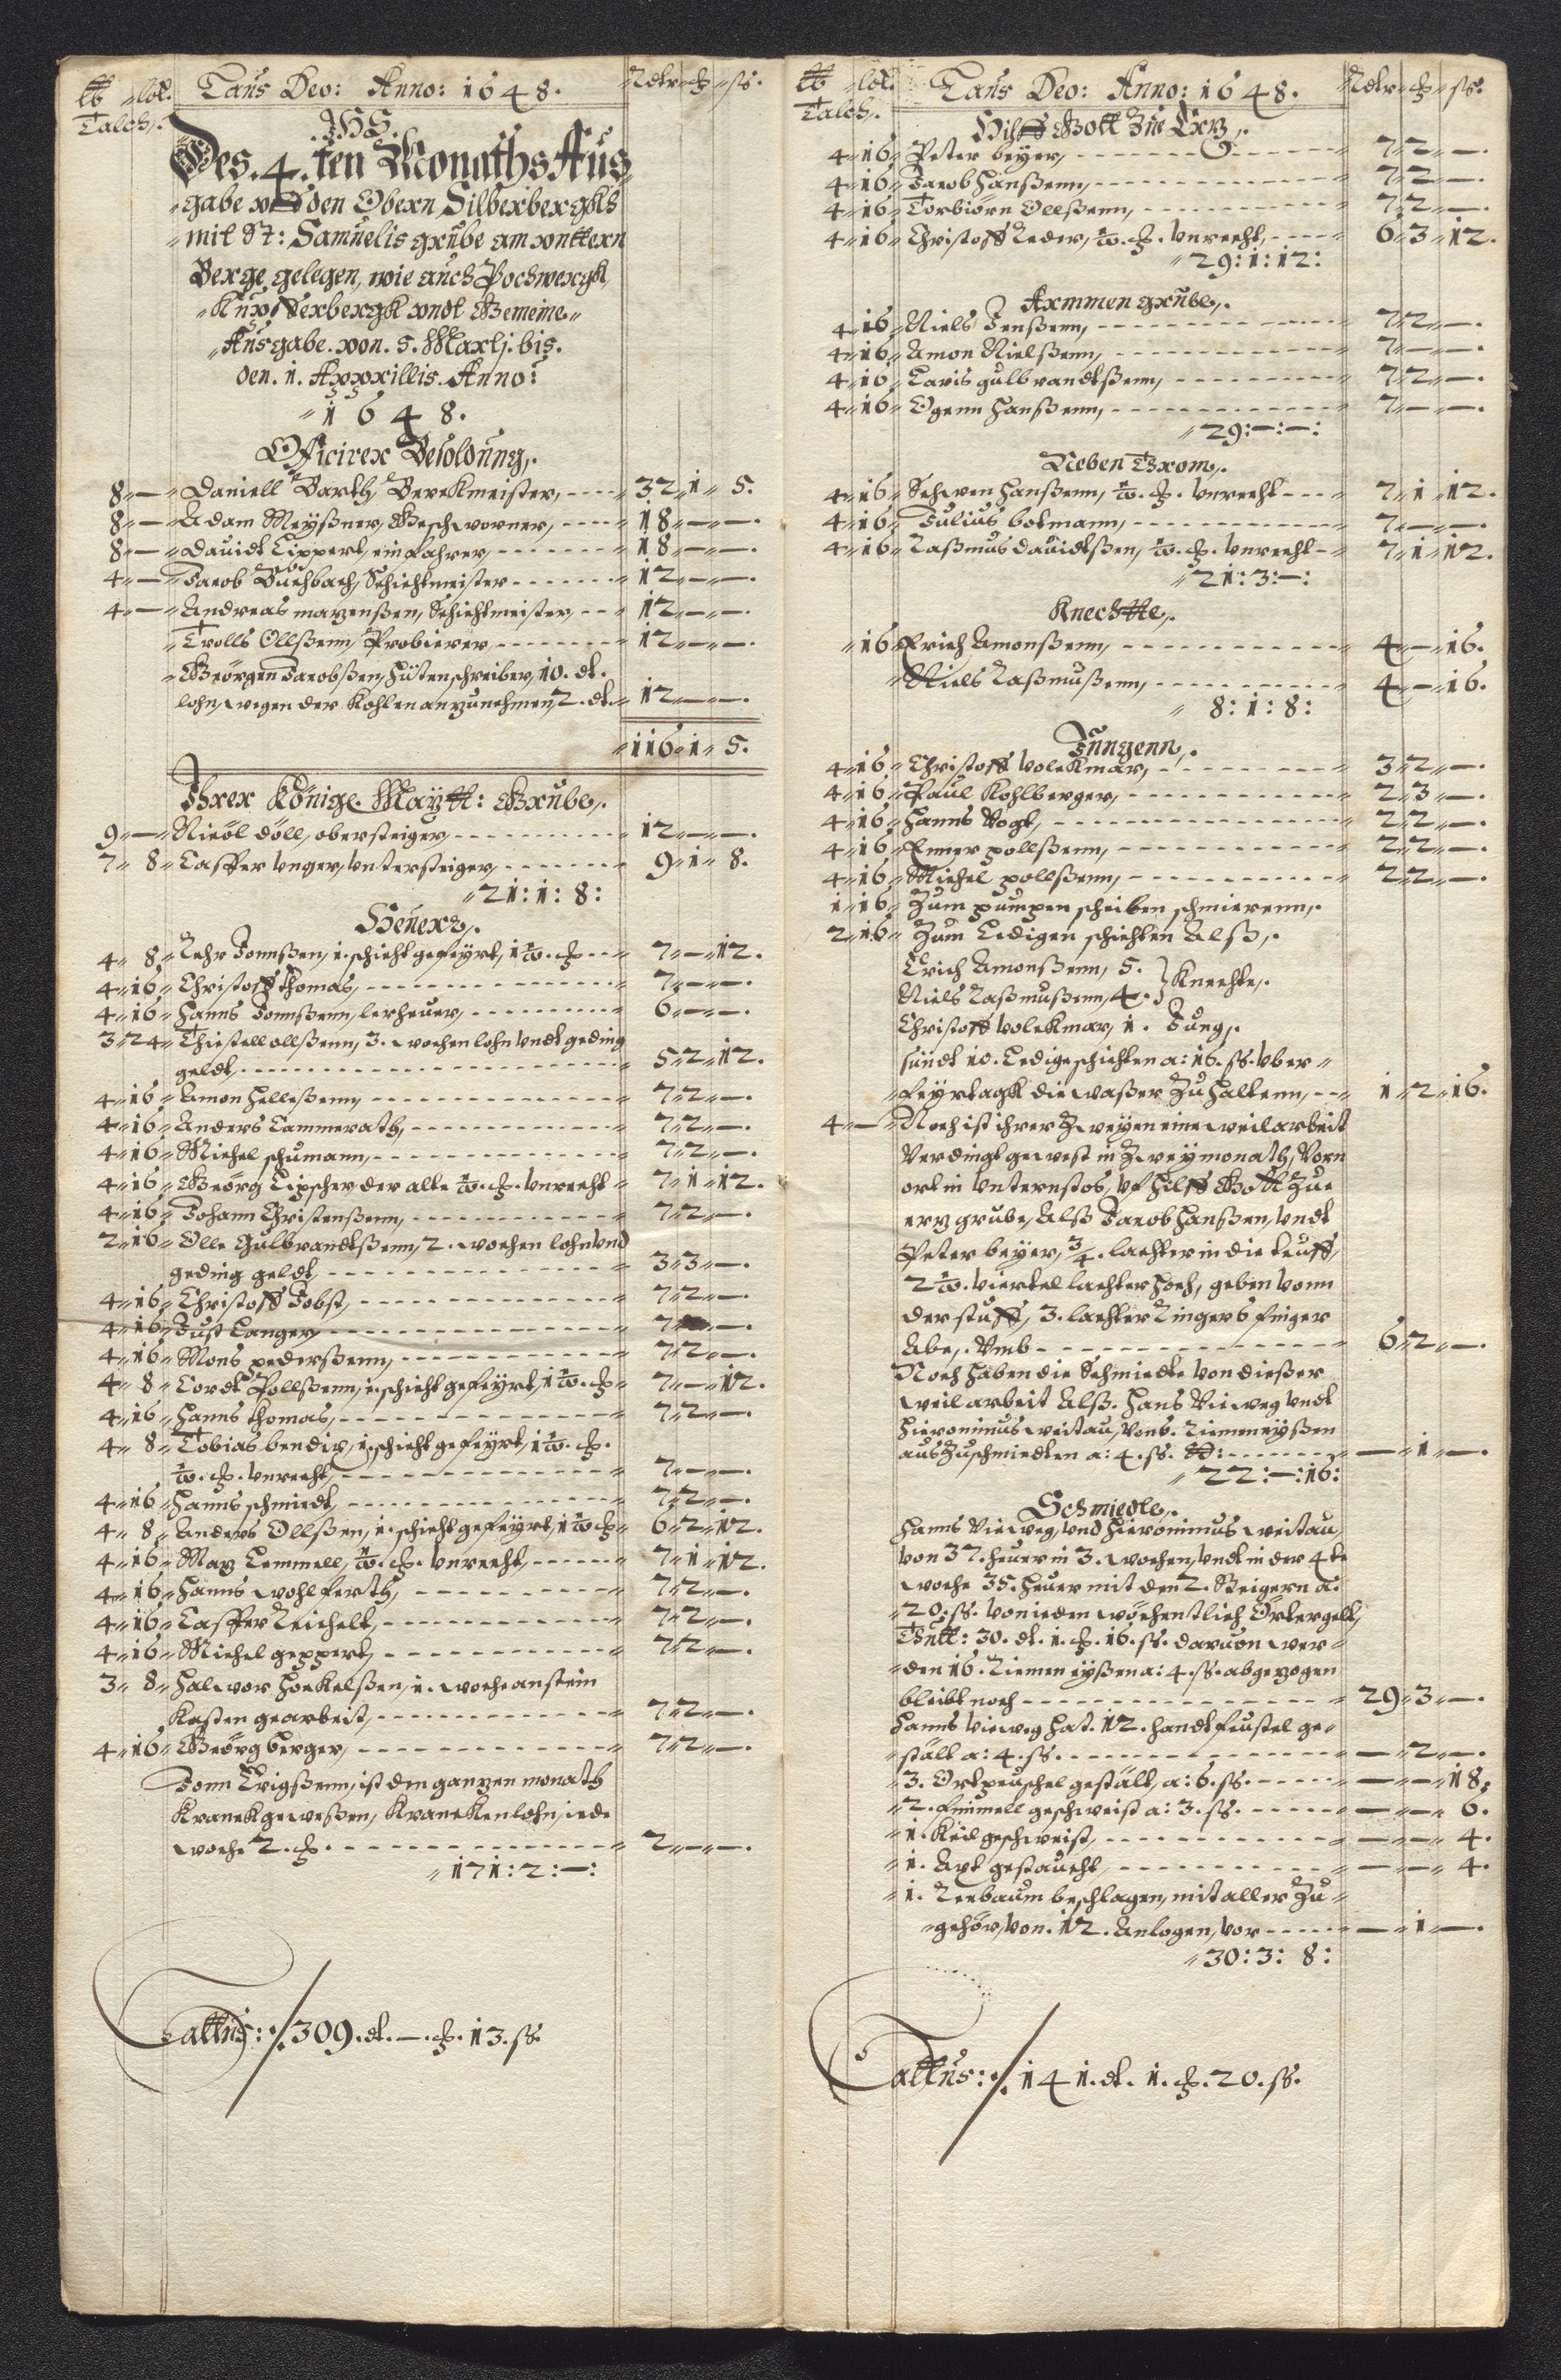 lb lot. Laus Deo: Anno: 1648. Rdtr
Talch.
JHS.
Des. 4. ten Monaths Aus
gabe den Obern Silberbergks
mit St: Samuelis grube am vnttern
Berge gelegen, wie auch Pochwergk,
vndt Gemeine
Ausgabe. von. 5. Martj. bis.
den. 1. Appprillis. Anno:
1648.
Officirer Besoldung.
8 — Daniell Barth, Berckmeister, 32 1 5.
8 — Adam Meyßner, Geschworner, 18 — —.
8 — Dauidt Lippert, einfahrer, 18 — —.
4 — Jacob Buchbach, Schichtmeister 12 — —.
4 — Andreas Schichtmeister, 12 — —.
Trolls Ollßenn, Probierer 12 — —.
Geörgen Jacobßen, Hütenschreiber, 10. dt.
lohn, wegen der Kohlen anzunehmen, 2. dt. 12 — —.
116 1 5.
Ihrer Königl. Maytt: Grube.
9 — Nicöl döll, obersteiger, 12 — —.
7 8 Casper vnger, vntersteiger, 9 1 8.
21: 1: 8:
Heuerr.
4 8 Jonnßen, 1. schicht gefeyrt, 7 — 12.
4 16 Christoff thomas, 7 — —.
4 16 Hanns Jonnßenn, lerheuer, 6 — —.
3 24 Thistell ollßenn, 3. wochen lohn vndt geding
geldt, 5 2 12.
4 16 Amon Helleßenn, 7 2 —.
4 16 Anders Cammerath, 7 2 —.
4 16 Michel schumann, 7 2 —.
4 16 Geörg Lipscher der alte vnrecht 7 1 12.
4 16 Johann Christenßenn, 7 2 —.
2 16 Olle Gulbrandtßenn, 2. wochen lohn vnd
geding geldt, 3 3 —.
4 16 Christoff Jobst, 7 2 —.
4 16 Just Langer, 7 —.
4 16 Mons pederßenn, 7 2 —.
4 8 Cordt Pollßenn, 1. schicht gefeyrt, 7 — 12.
4 16 Hanns thomas, 7 2 —.
4 8 Tobias bendix, 1. schicht gefeyrt,
vnrecht, 7 — —.
4 16 Hanns schmiedt, 7 2 —.
4 8 Anders Ollßen, 1. schicht gefeyrt, 6 2 12.
4 16 Max Lemmell, vnrecht, 7 1 12.
4 16 Hanns wohlferth, 7 2 —.
4 16 Casper Reichelt, 7 2 —.
4 16 Michel geppert, 7 2 —.
3 8 Halwor Hockelßen, 1. woche an stein
Kasten gearbeit, 7 2 —.
4 16 Geörg berger, 7 2 —.
Jonn Erigßenn, ist den ganzen monath
Kranck geweßen, Krancken lohn, iede
woche 2. 2 — —.
171: 2: —:
Lattus: 309. dt. —. 13. ß.
lb lot. Laus Deo: Anno: 1648. Rdtr
Talch.
Hilff Gott Zue Erz.
4 16 Peter beyer, 7 2 —.
4 16 Jacob Hanßenn, 7 2 —.
4 16 Torbiörn Ollßenn, 7 2 —.
4 16 Christoff Leder, vnrecht, 6 3 12.
29: 1: 12:
Armmen grube.
4 16 Niels Jenßenn, 7 2 —.
4 16 Amon Nielßenn, 7 — —.
4 16 Laris gulbrandtßenn, 7 2 —.
4 16 Ogenn Hanßenn, 7 — —.
29: —: —:
Neben Trom.
4 16 Schwen Hanßenn, vnrecht 7 1 12.
4 16 Julius botmann, 7 — —.
4 16 Raßmus dauidtßen, vnrecht 7 1 12.
21: 3: —:
Knechtte.
16 Erich Amonßenn, 4 — 16.
Niels Raßmußenn, 4 — 16.
8: 1: 8:
Jungenn.
4 16 Christoff volckmar, 3 2 —.
4 16 Paul Kohlberger, 2 3 —.
4 16 Hanns Vogt, 2 2 —.
4 16 Enner pollßenn, 2 2 —.
4 16 Michel pollßenn, 2 2 —.
1 16 Zum pumpen scheiben schmierenn.
2 16 Zum Ledigen schichten Alß.
Erich Amonßenn, 5.
Niels Raßmußenn, 4. } Knechte.
Christoff volckmar, 1. Jung.
sündt 10. Ledige schichten a: 16. ß. vber
feyrtagk die waßer Zu haltenn, 1 2 16.
4 — Noch ist ihrer Zweyen eine weil arbeit
verdingt gewest in Zwey monath, Vorn
ort in Vf Hilff Gott Zue
erz grube, Alß Jacob Hanßen, vndt
Peter beyer, 3/4. lachter in die teuff,
2 viertel lachter hoch, geben vonn
der stuff, 3. lachter finger
Abe. Vmb 6 2 —.
Noch haben die Schmiedte von dießer
weil arbeit Alß. Hans Vieweg vndt
Hieronimus weitau, Riemeneyßen
aus Zuschmiedten a: 4. ß. — 1 —.
22: —: 16:
Schmiedte.
Hanns Vieweg, vnd Hieronimus weitau,
von 37. Heuer in 3. wochen, vndt in der 4te
woche 35. Heuer mit den 2. Steigern a:
20. ß. von ieden wöchentlich Örtergelt,
Thutt: 30. dt. 1. 16. ß. daruon wer
den 16. Riemen eyßen a: 4. ß. abgezogen
bleibt noch 29 3 —.
Hanns Vieweg hat. 12. handt feustel ge
stält a: 4. ß. — 2 —.
3. Ortpeuschel gestält, a: 6. ß. — — 18.
2. fimmell geschweist a: 3. ß. — — 6.
1. Keil geschweist, — — 4.
1. Axt gestaucht, — — 4.
1. beschlagen, mit aller Zu
gehör, von. 12. Anlogen, vor — 1 —.
30: 3: 8:
Lattus: 141. dt. 1. 20. ß.